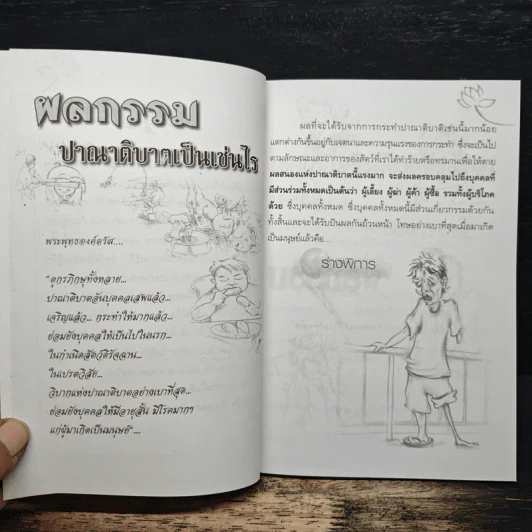 ผลกรรม
ปาณาติบาตเป็นเช่นไร
พระพุทธองค์ตรัส....
"ดูกรภิกษุทั้งหลาย...
ปาณาติบาตอันบุคคลเสพแล้ว...
เจริญแล้ว... กระทำให้มากแล้ว...
ย่อมยังบุคคลให้เป็นไปในนรก...
ในกำเนิดสัตว์ดิรัจฉาน...
ในเปรตวิสัย...
วิบากแห่งปาณาติบาตอย่างเบาที่สุด...
ย่อมยังบุคคลให้มีอายุสั้น มีโรคมากฯ
แก่ผู้มาเกิดเป็นมนุษย์"...
ผลที่จะได้รับจากการกระทำปาณาติบาติเช่นนี้มากน้อย
แตกต่างกันขึ้นอยู่กับเจตนาและความรุนแรงของการกระทำ ซึ่งจะเป็นไป
ตามลักษณะและอาการของสัตว์ที่เราได้ทำร้ายหรือทรมานเพื่อให้ตาย
ผลสนองแห่งปาณาติบาตนี้แรงมาก จะส่งผลครอบคลุมไปถึงบุคคลที่
มีส่วนร่วมทั้งหมดเป็นต้นว่า ผู้เลี้ยง ผู้ฆ่า ผู้ค้า ผู้ซื้อ รวมทั้งผู้บริโภค
ด้วย ซึ่งบุคคลทั้งหมด ซึ่งบุคคลทั้งหมดนี้มีส่วนเกี่ยวกรรมด้วยกัน
ทั้งสิ้นและจะได้รับปันผลกันถ้วนหน้า โทษอย่างเบาที่สุดเมื่อมาเกิด
เป็นมนุษย์แล้วคือ...
ร่างพิการ